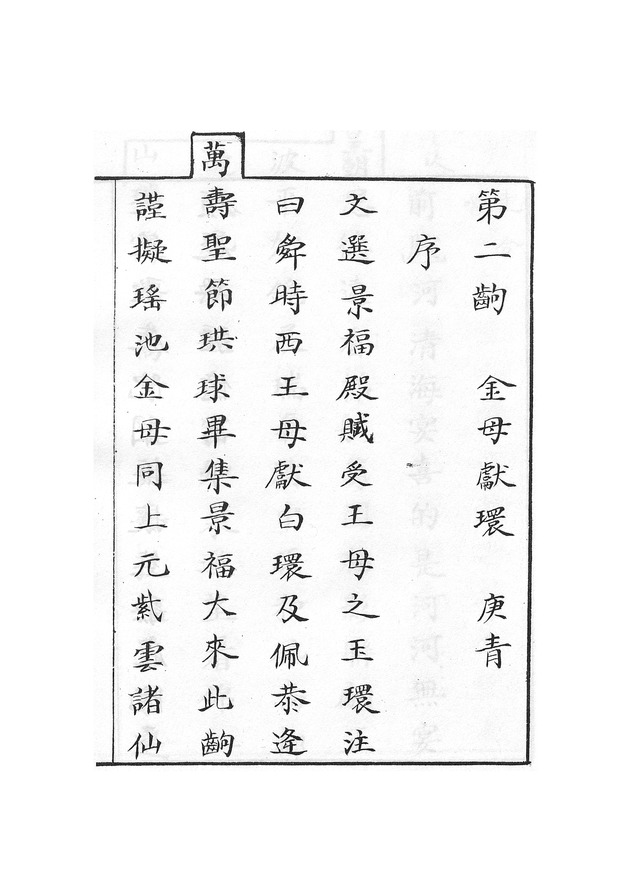 第二齣 金母獻環 庚青
序
文選景福殿賦受王母之玉環注
曰舜時西王母獻白環及佩恭逢
萬壽聖節珙球畢集景福大來此齣
謹擬瑤池金母同上元紫雲諸仙